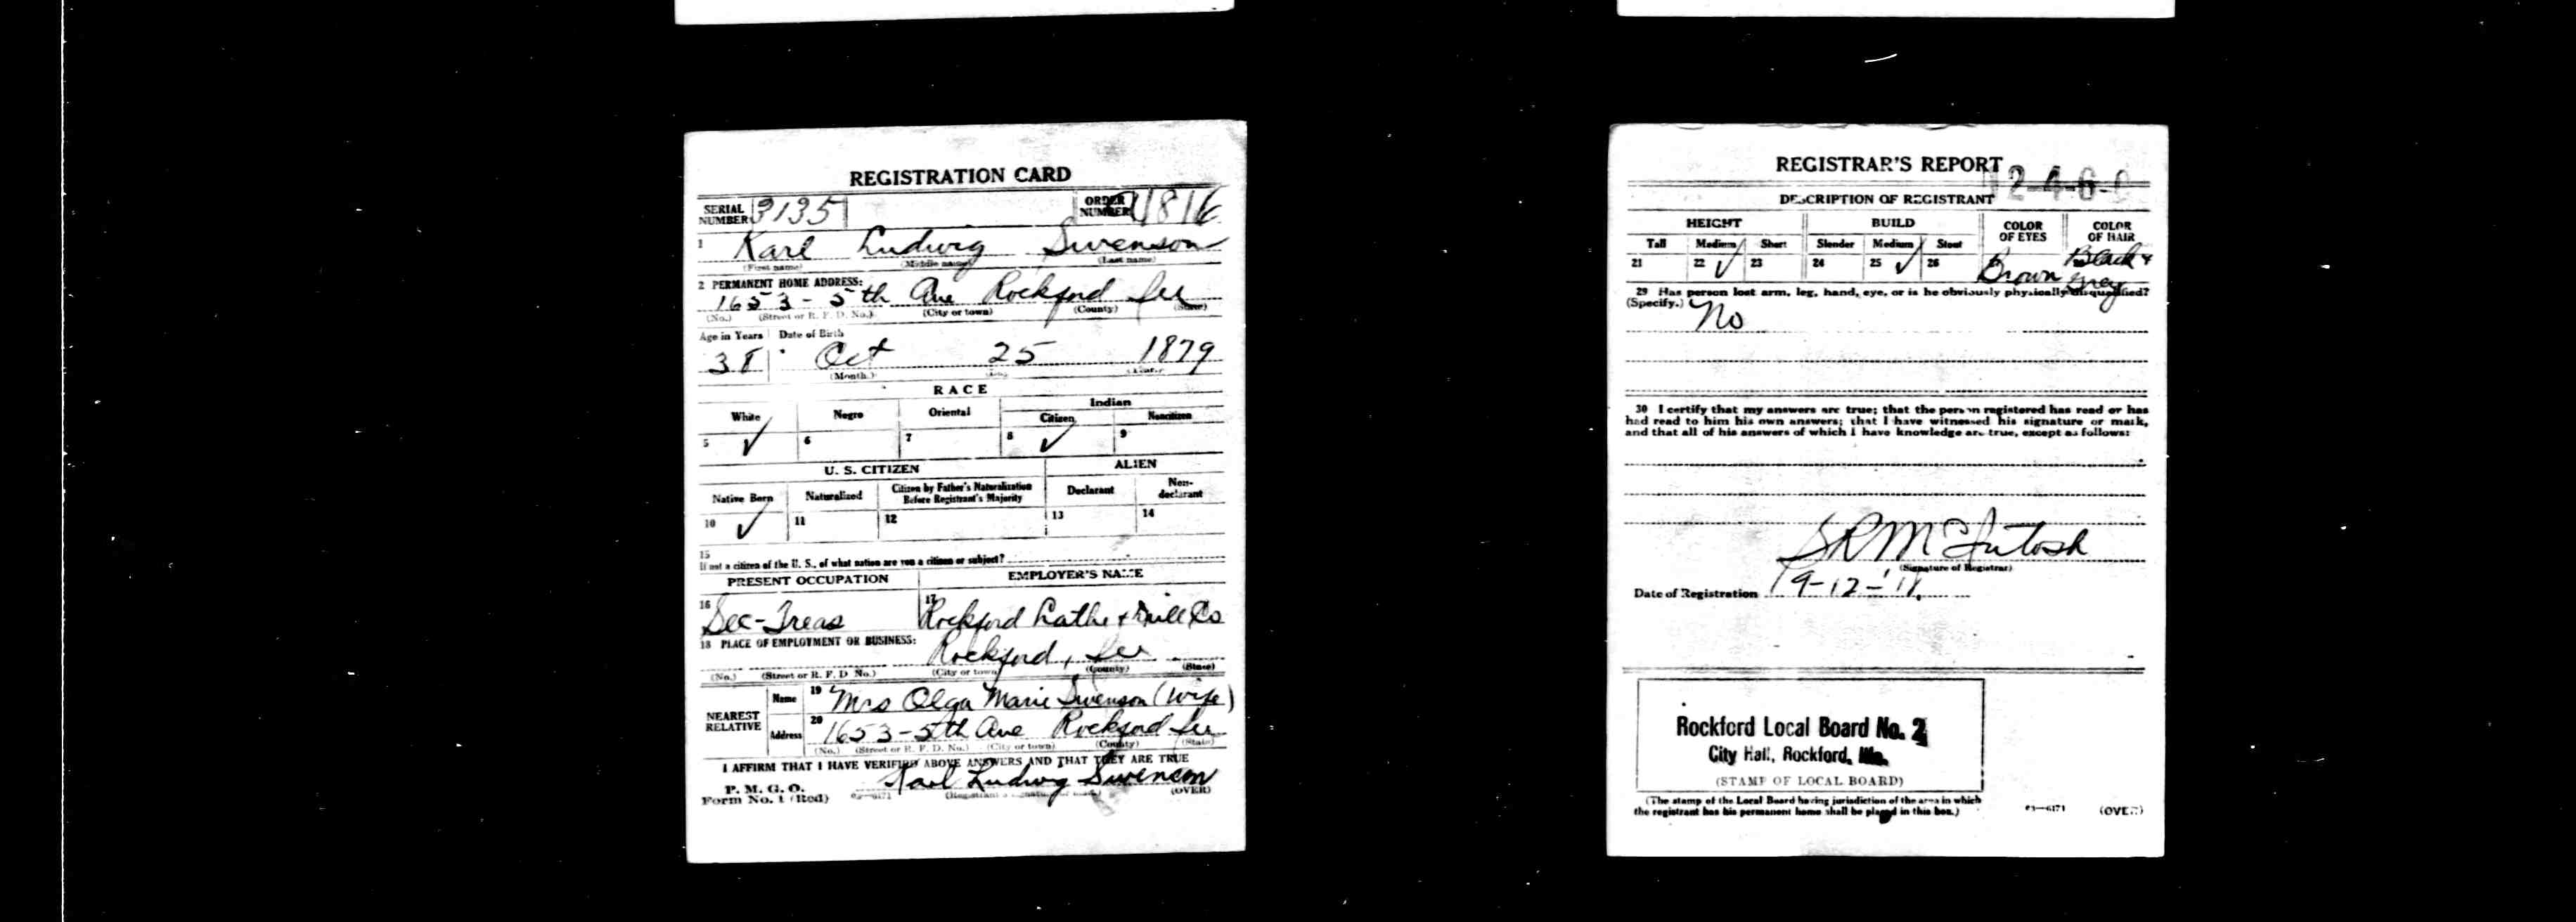 REGISTRATION CARD
SERIAL NUMBER 3135 ORDER NUMBER 1816
1 Karl Ludwig Swenson
(First name) (Middle name) (Last name)
2 PERMANENT HOME ADDRESS:
1653 - 5th Ave Rockford Ill
(No.) (Street or R. F. D. No.) (City or town) (County) (State)
Age in Years Date of Birth
38 Oct 25 1879
(Month.) (Day.) (Year.)
RACE
White Negro Oriental Indian
Citizen Noncitizen
5 ✓ 6 7 8 ✓ 9
U. S. CITIZEN ALIEN
Native Born Naturalized Citizen by Father's Naturalization Before Registrant's Majority Declarant Non-declarant
10 ✓ 11 12 13 14
15
If not a citizen of the U. S., of what nation are you a citizen or subject?
PRESENT OCCUPATION EMPLOYER'S NAME
16 Sec-Treas 17 Rockford Lathe + Drill Co
18 PLACE OF EMPLOYMENT OR BUSINESS:
Rockford, Ill
(No.) (Street or R. F. D. No.) (City or town) (County) (State)
NEAREST RELATIVE
Name 19 Mrs Olga Marie Swenson (wife)
Address 20 1653-5th Ave Rockford Ill
(No.) (Street or R. F. D. No.) (City or town) (County) (State)
I AFFIRM THAT I HAVE VERIFIED ABOVE ANSWERS AND THAT THEY ARE TRUE
P. M. G. O.
Form No. 1 (Red) 03—6171 Karl Ludwig Swenson (OVER)
REGISTRAR'S REPORT
DESCRIPTION OF REGISTRANT
HEIGHT BUILD COLOR OF EYES COLOR OF HAIR
Tall Medium Short Slender Medium Stout
21 22 ✓ 23 24 25 ✓ 26 Brown Black + Grey
29 Has person lost arm, leg, hand, eye, or is he obviously physically disqualified?
(Specify.) No
30 I certify that my answers are true; that the person registered has read or has
had read to him his own answers; that I have witnessed his signature or mark,
and that all of his answers of which I have knowledge are true, except as follows:
S R McIntosh
(Signature of Registrar)
Date of Registration 9-12-'18
Rockford Local Board No. 2
City Hall, Rockford, Ills.
(STAMP OF LOCAL BOARD)
(The stamp of the Local Board having jurisdiction of the area in which
the registrant has his permanent home shall be placed in this box.)
03—6171 (OVER)